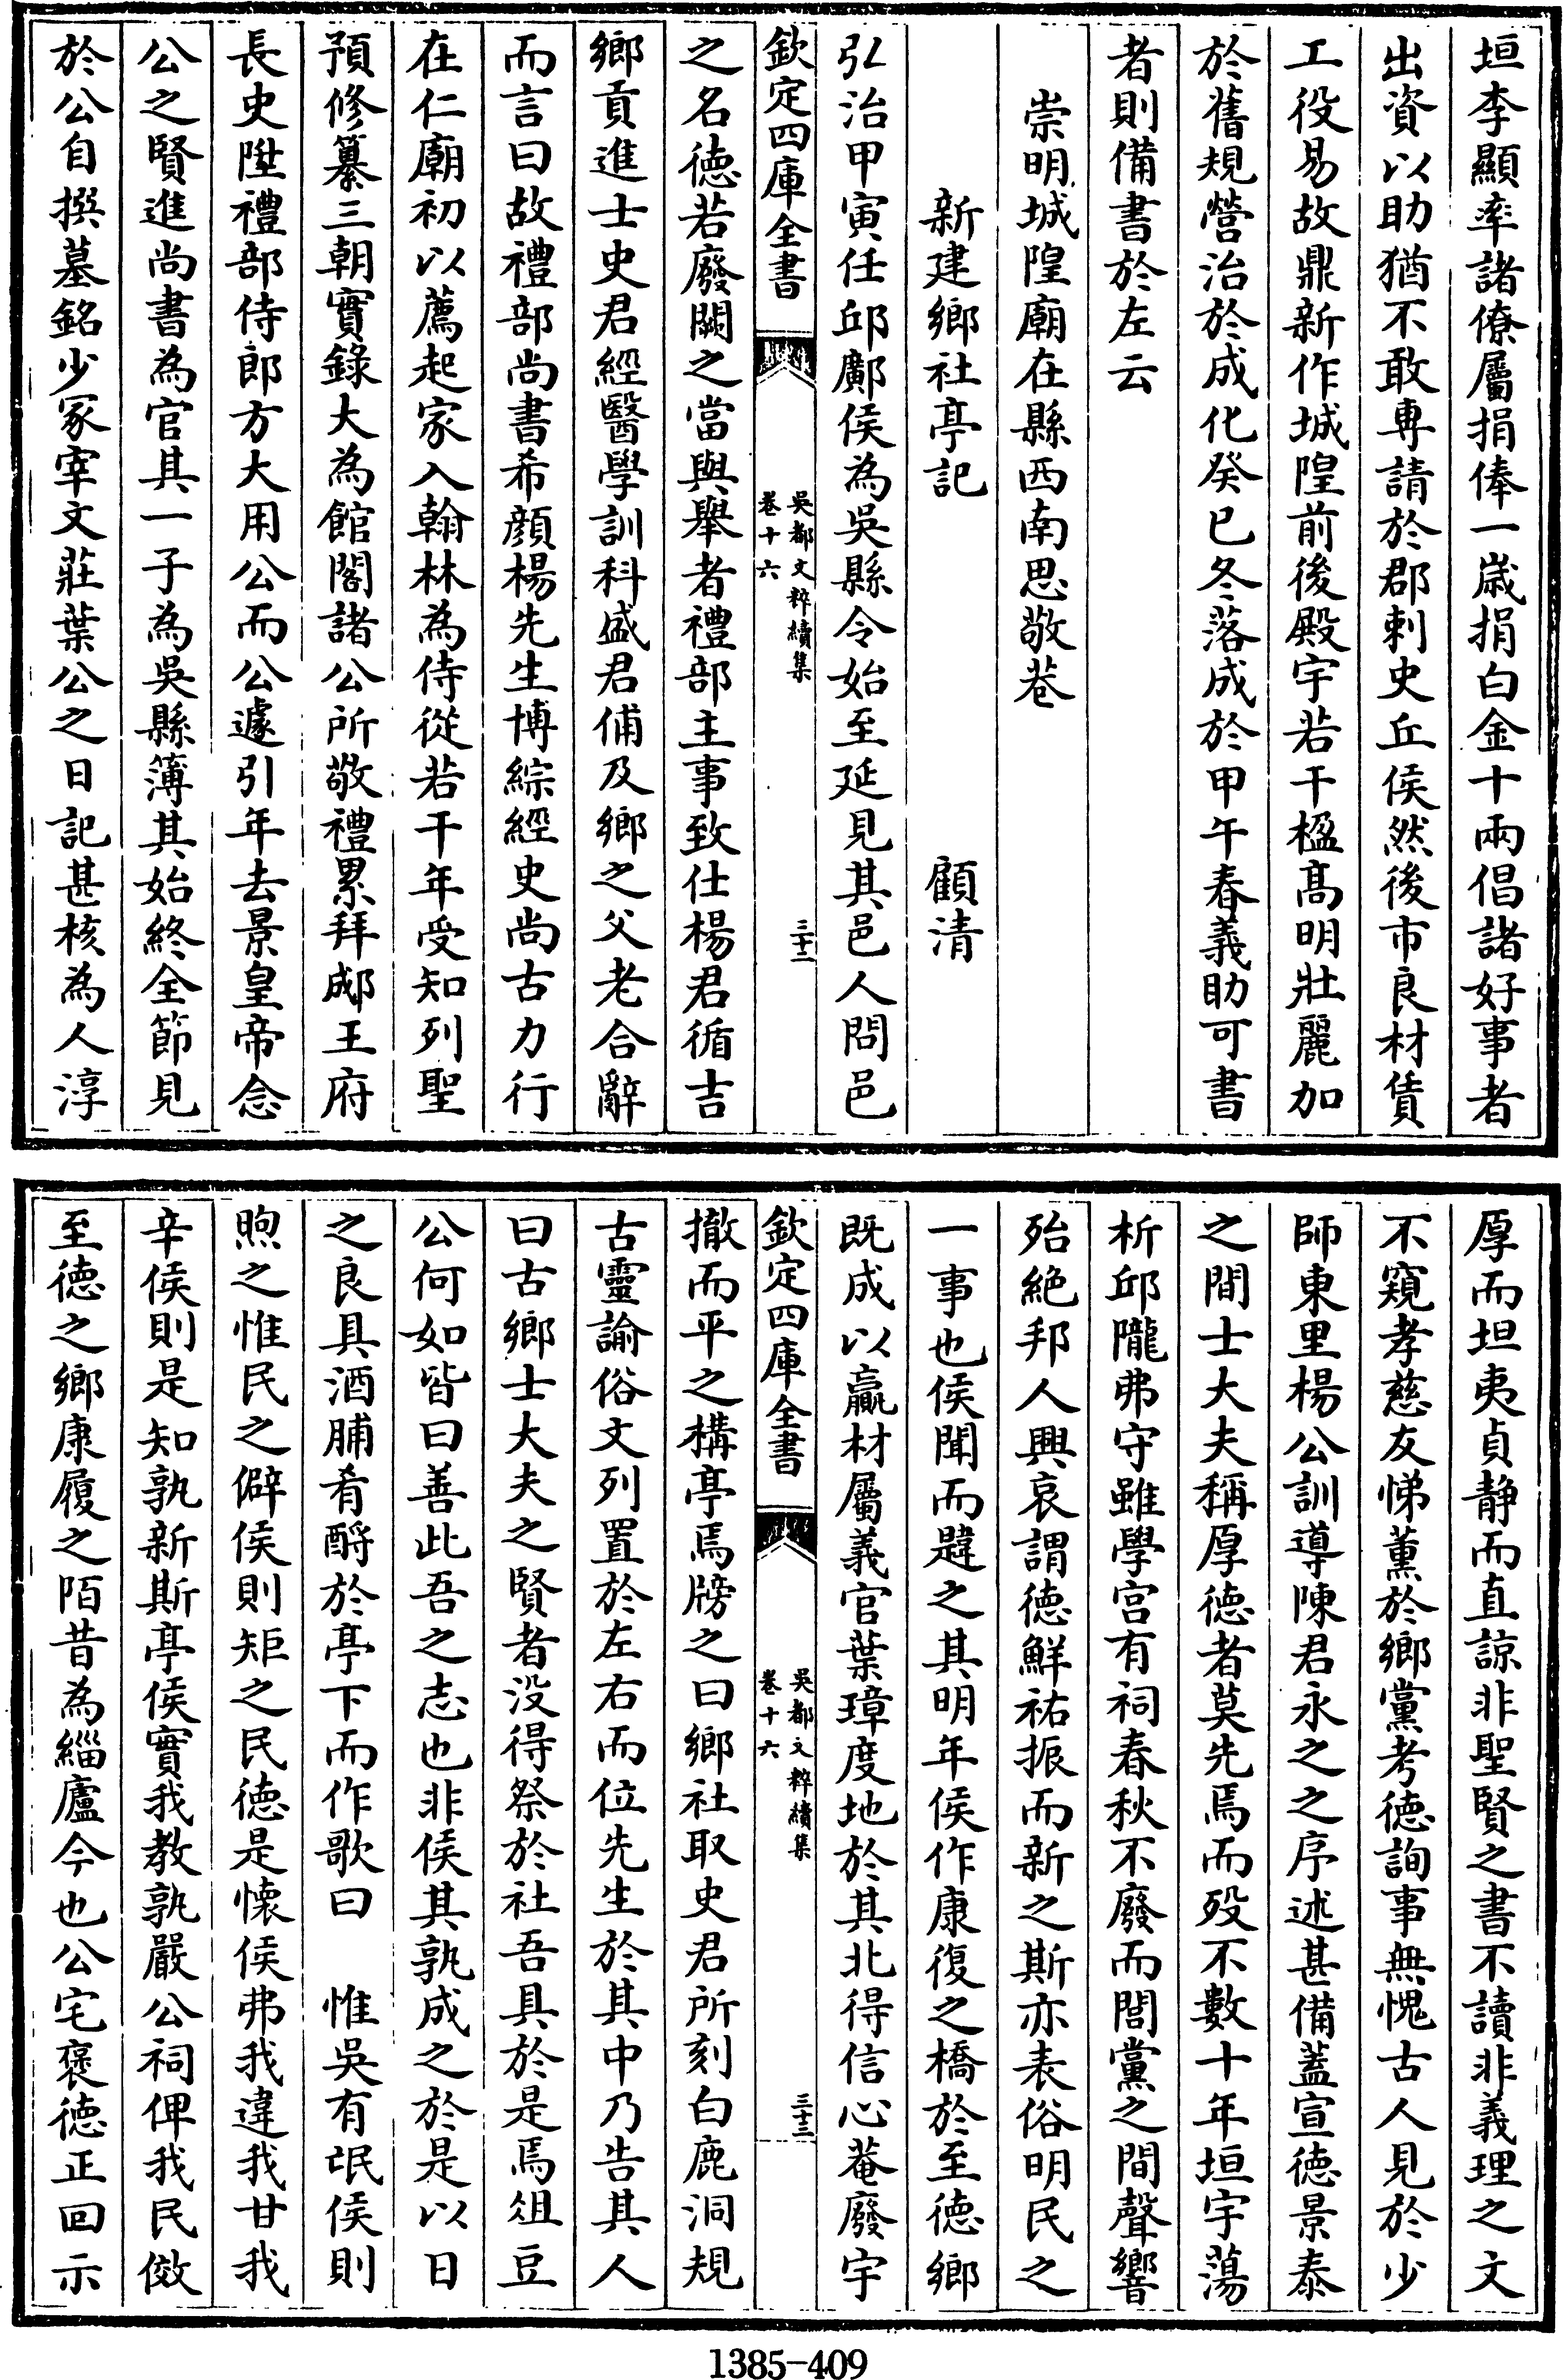 垣李顯率諸僚屬捐俸一歲捐白金十兩倡諸好事者
出資以助猶不敢専請於郡刺史丘侯然後市良材賃
工役易故鼎新作城隍前後殿宇若干楹髙明壯麗加
於舊規營治於成化癸巳冬落成於甲午春義助可書
者則備書於左云
崇明城隍廟在縣西南思敬巷
新建鄉社亭記 顧清
弘治甲寅任邱鄺侯為吳縣令始至延見其邑人問邑
欽定四庫全書 吳都文粹續集 卷十六 三十二
之名德若廢闕之當與舉者禮部主事致仕楊君循吉
鄉貢進士史君經醫學訓科盛君俌及鄉之父老合辭
而言曰故禮部尚書希顔楊先生博綜經史尚古力行
在仁廟初以薦起家入翰林為侍從若干年受知列聖
預修纂三朝實錄大為館閣諸公所敬禮累拜郕王府
長史陞禮部侍郎方大用公而公遽引年去景皇帝念
公之賢進尚書為官其一子為吳縣簿其始終全節見
於公自撰墓銘少冢宰文莊葉公之日記甚核為人淳
厚而坦夷貞静而直諒非聖賢之書不讀非義理之文
不窺孝慈友悌薫於鄉黨考德詢事無愧古人見於少
師東里楊公訓導陳君永之之序述甚備蓋宣德景泰
之間士大夫稱厚德者莫先焉而殁不數十年垣宇蕩
析邱隴弗守雖學宫有祠春秋不廢而閭黨之間聲響
殆絶邦人興哀謂德鮮祐振而新之斯亦表俗明民之
一事也侯聞而韙之其明年侯作康復之橋於至德鄉
既成以贏材屬義官葉璋度地於其北得信心菴廢宇
欽定四庫全書 吳都文粹續集 卷十六 三十三
撤而平之構亭焉牓之曰鄉社取史君所刻白鹿洞規
古靈諭俗文列置於左右而位先生於其中乃告其人
曰古鄉士大夫之賢者没得祭於社吾具於是焉俎豆
公何如皆曰善此吾之志也非侯其孰成之於是以日
之良具酒脯肴酹於亭下而作歌曰 惟吳有氓侯則
煦之惟民之僻侯則矩之民德是懷侯弗我違我甘我
辛侯則是知孰新斯亭侯實我教孰嚴公祠俾我民傚
至德之鄉康履之陌昔為緇廬今也公宅褒德正回示
1385-409